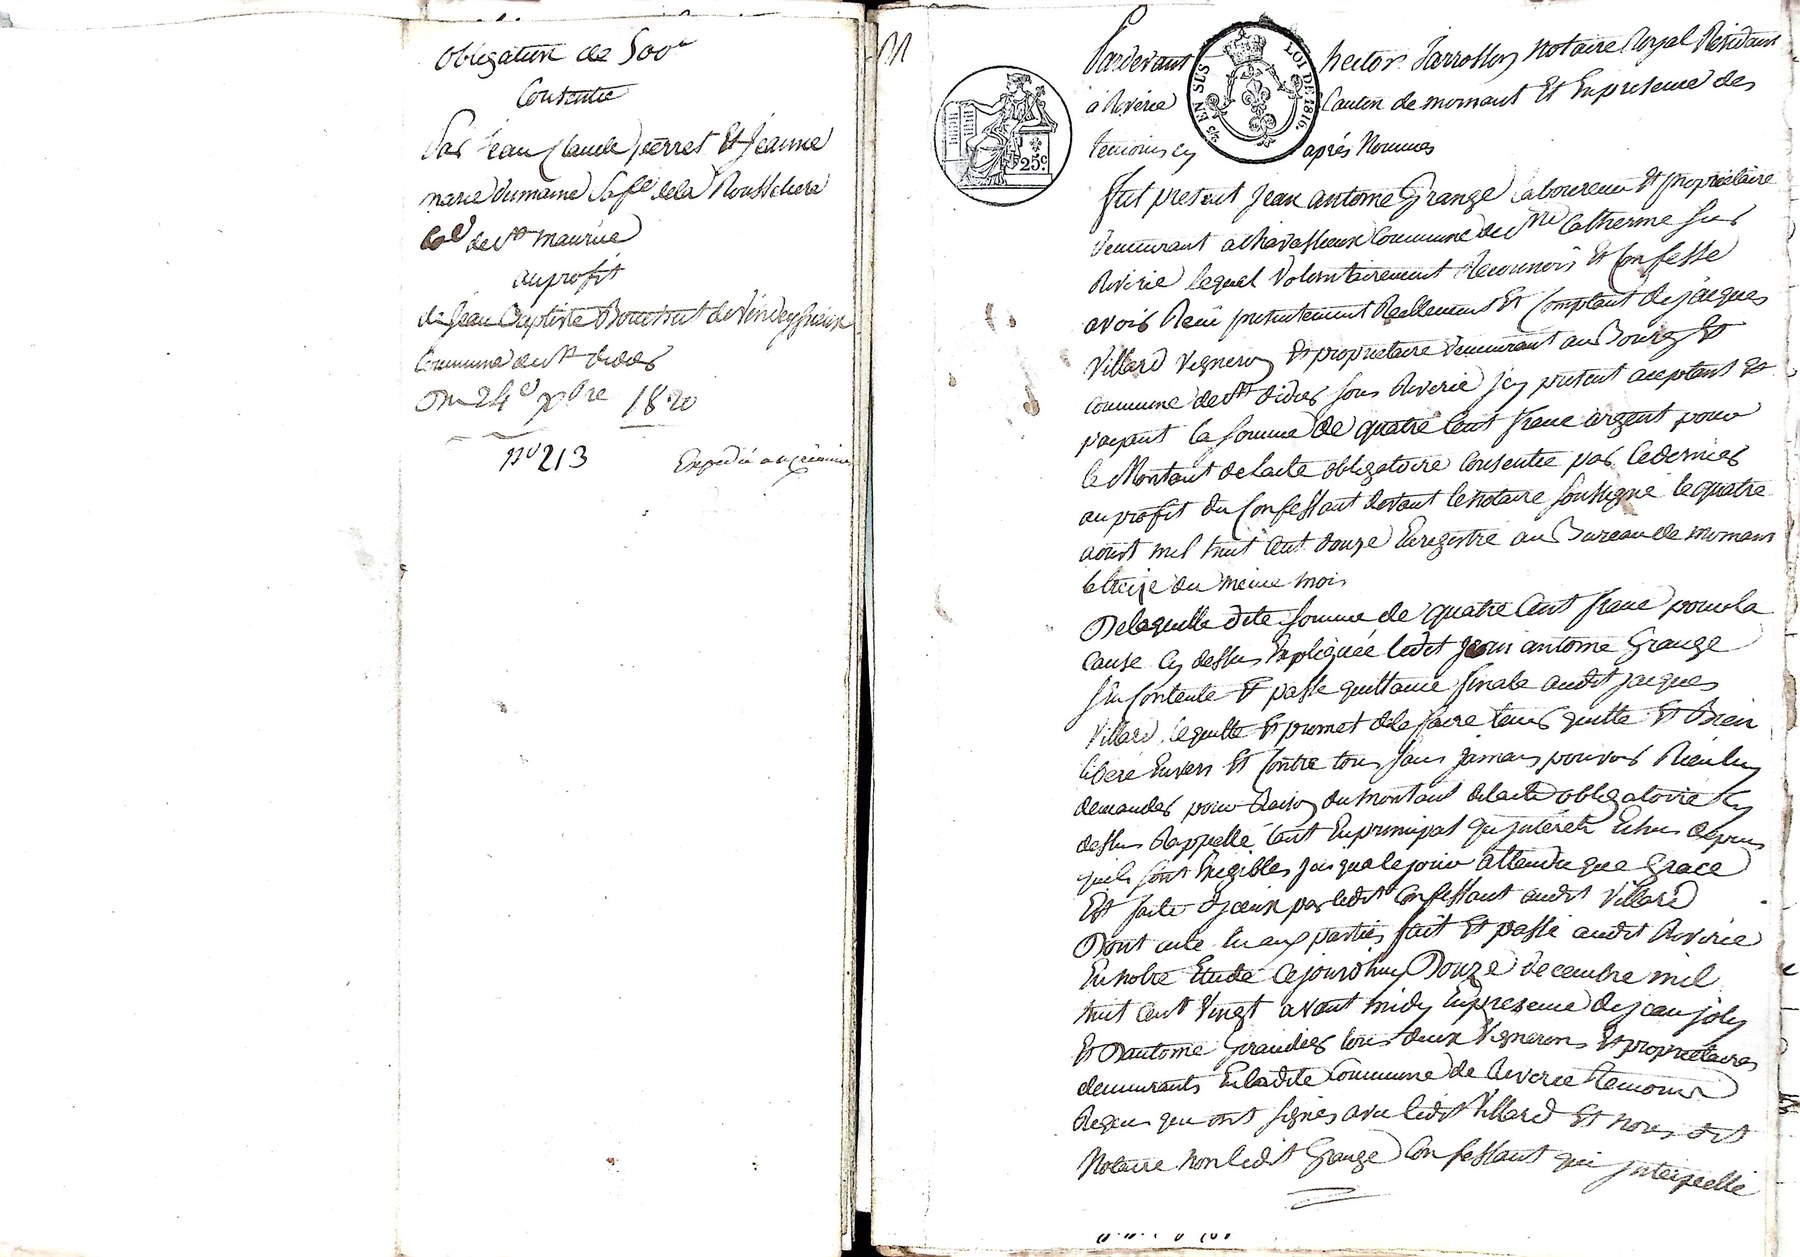 Obligation de 500"
Consentie
Par Jean Claude pierret Et Jeanne
marie dumaine Sa fe dela Rousseliere
Coe de St maurice
au profit
de Jean Baptiste de
Commune de St didier
Du 24e xbre 1820
No 213 Expedié
Pardevant hector Jarrosson notaire Royal Résidant
à Riverie Canton de mornant Et En presence des
temoins cy après Nommés
EN SUS LOI DE 1816.
25c.
Fut present Jean antoine Grange laboureur Et propriétaire
demeurant a Commune de Ste Catherine Sur
Riverie lequel Volontairement Reconnois Et Confesse
avoir Reçu presentement Reellement Et Comptant de jacques
Villard Vigneron Et proprietaire demeurant au Bourg Et
commune de St didier sous Riverie jcy present acceptant Et
payant la somme de quatre Cent franc argent pour
le Montant de lacte obligatoire Consentie par Ce dernier
au profit du Confessant devant le Notaire soussigné le quatre
aoust mil huit Cent douze Enregistré au Bureau de mornant
le treize du meme mois
De laquelle dite somme de quatre Cent franc pour la
Cause cy dessus Expliquée ledit jean antoine Grange
sen Contente Et passe quittance finale audit jacques
Villard lequitte Et promet de le faire tenir quitte Et Bien
liberé Envers Et Contre tous sans jamais pouvoir Rien luy
demander pour Raison du montant de lacte obligatoire Cy
dessus Rappellé tant En principal qu jntérêts Echus depuis
quils sont Exigibles jusqua le jour attendu que Grace
Est faite diceux par ledit Confessant audit Villard
Dont acte lu aux parties fait Et passé audit Riverie
En notre Etude Cejourdhuy Douze decembre mil
huit Cent Vingt avant midy En presence de jean joly
Et Dantoine Grandier tous deux Vignerons Et propriétaires
demeurants En ladite Commune de Riverie temoins
Requis qui ont signés avec ledit Villard Et Nous dit
Notaire non ledit Grange Confessant qui jnterpellé